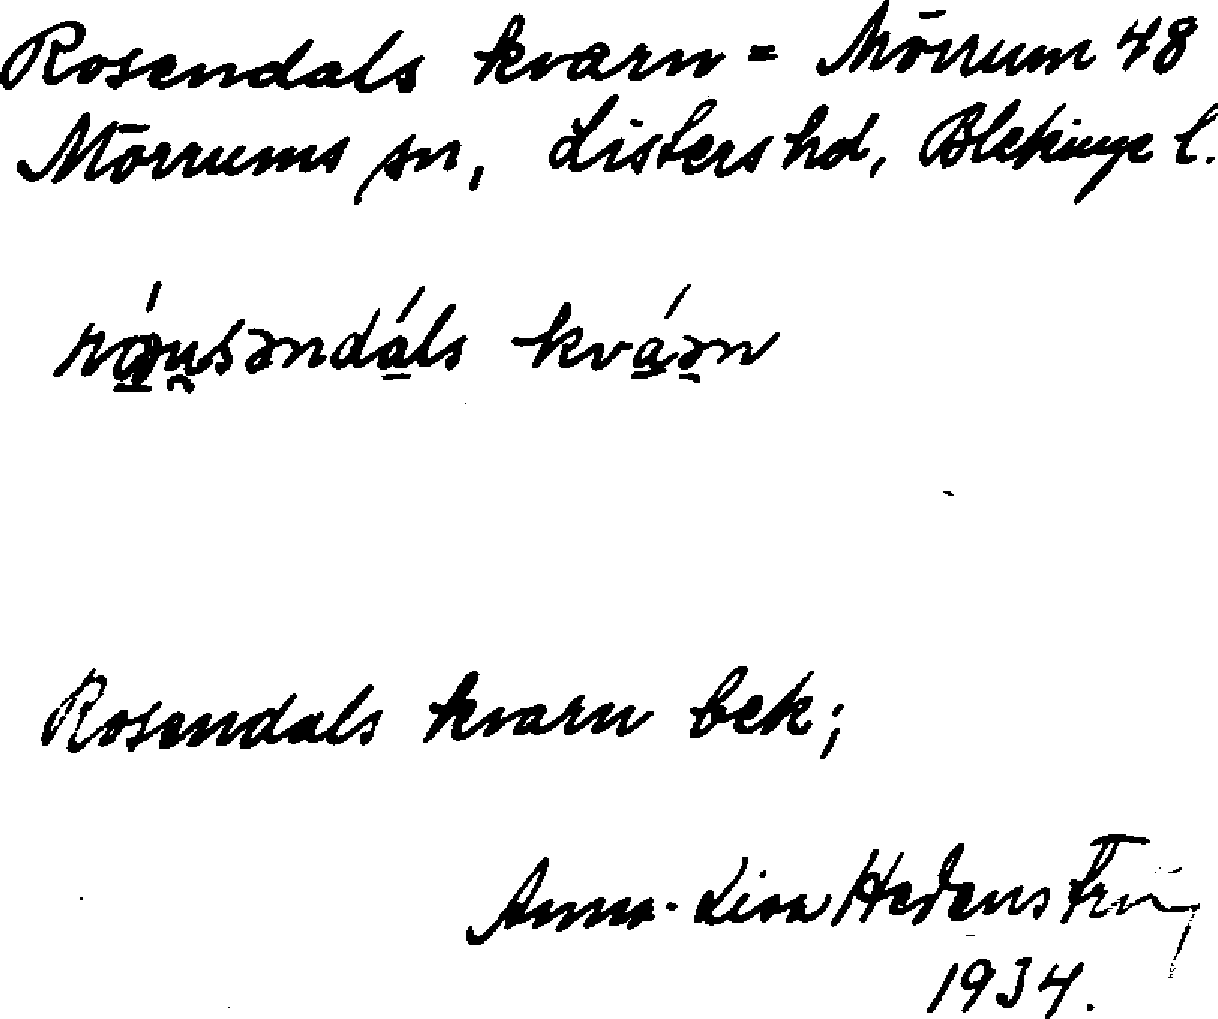 Rosendals kvarn = Mörrum 48
Mörrums sn, Listers hd, Blekinge l.
kvarn
Rosendals kvarn bek;
Anna-Lisa Hedenström
1934.